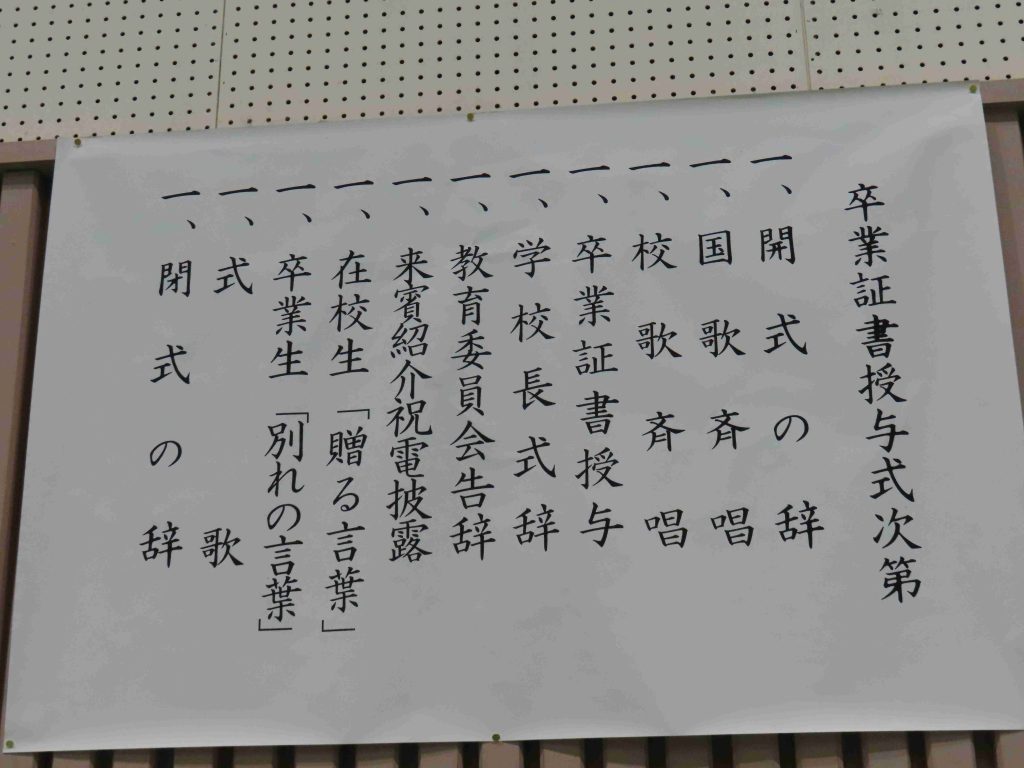 卒業証書授与式次第
一、開式の辞
一、国歌斉唱
一、校歌斉唱
一、卒業証書授与
一、学校長式辞
一、教育委員会告辞
一、来賓紹介祝電披露
一、在校生「贈る言葉」
一、卒業生「別れの言葉」
一、式歌
一、閉式の辞